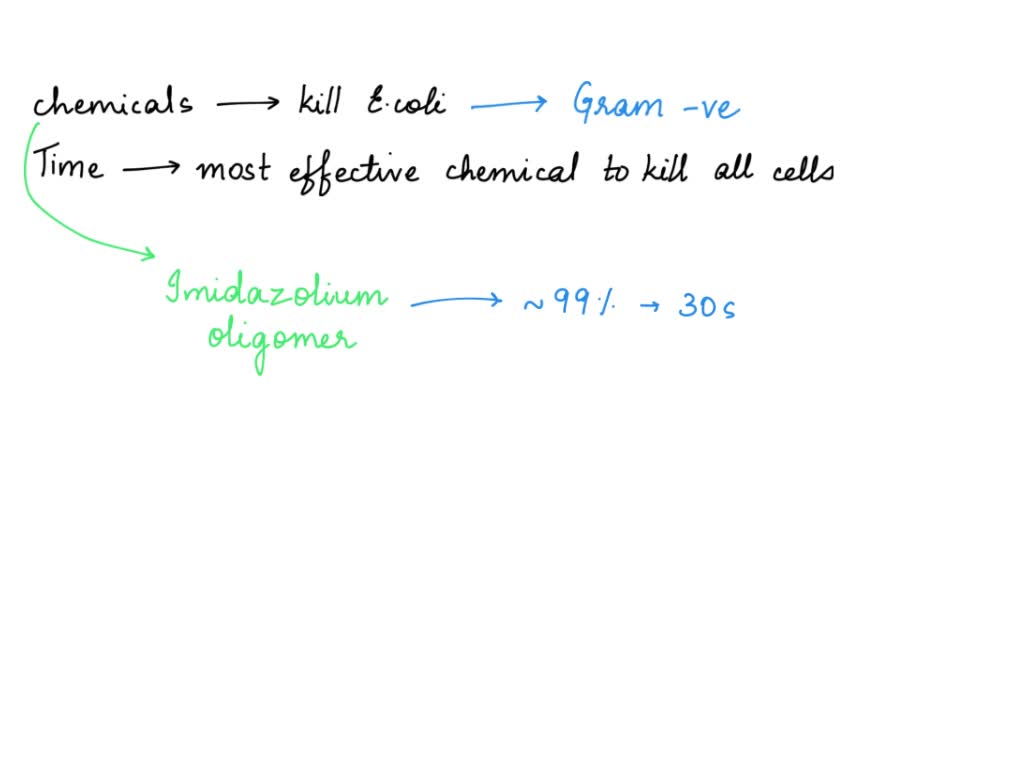 chemicals → kill E.coli → Gram -ve
Time → most effective chemical to kill all cells
Imidazolium → ~99% → 30s
oligomer